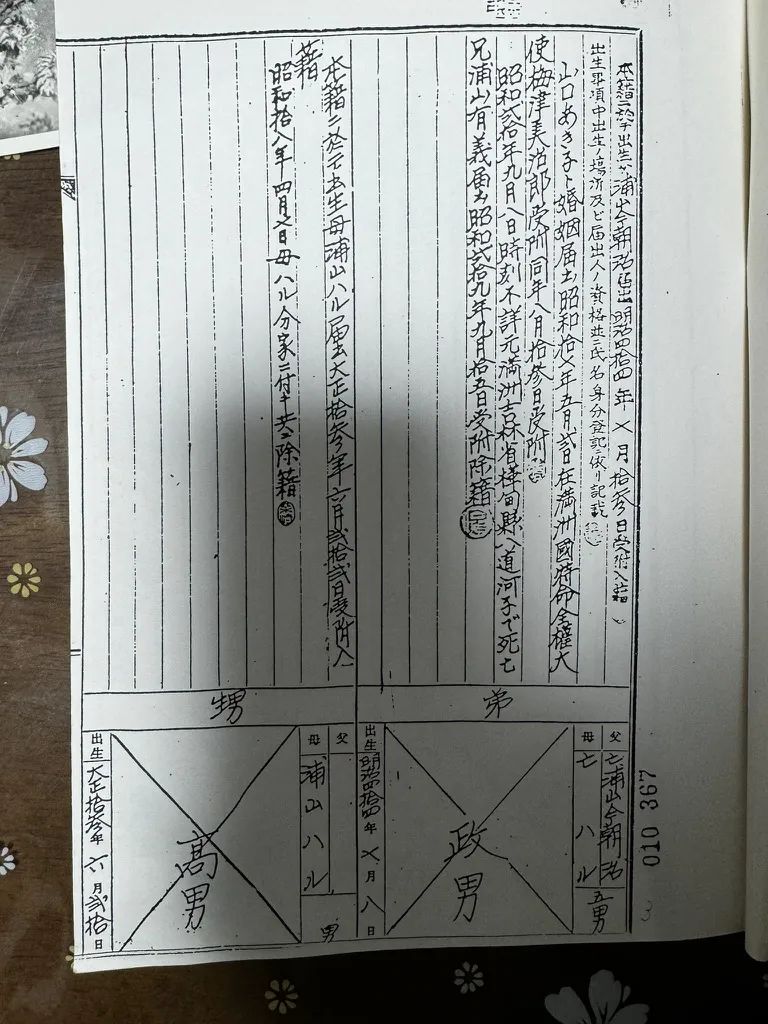 本籍ニ於テ出生父浦山今朝治届出明治四拾四年七月拾参日受附入籍
出生事項中出生ノ場所及ビ届出人ノ資格並ニ氏名身分登記ニ依リ記載
山口あき子ト婚姻届出昭和拾八年五月弐日在満洲國特命全權大
使梅津美治郎受附同年八月拾参日受附
昭和弐拾年九月八日時刻不詳元満洲吉林省樺甸縣八道河子で死亡
兄浦山有義届出昭和弐拾九年九月拾五日受附除籍
弟
父 亡浦山今朝治
母 亡 ハル
五男
政男
出生 明治四拾四年七月八日
本籍ニ於テ出生母浦山ハル届出大正拾参年六月弐拾弐日受附入
籍
昭和拾八年四月七日母ハル分家ニ付キ共ニ除籍
甥
父
母 浦山ハル
男
高男
出生 大正拾参年六月弐拾日
010 367
3